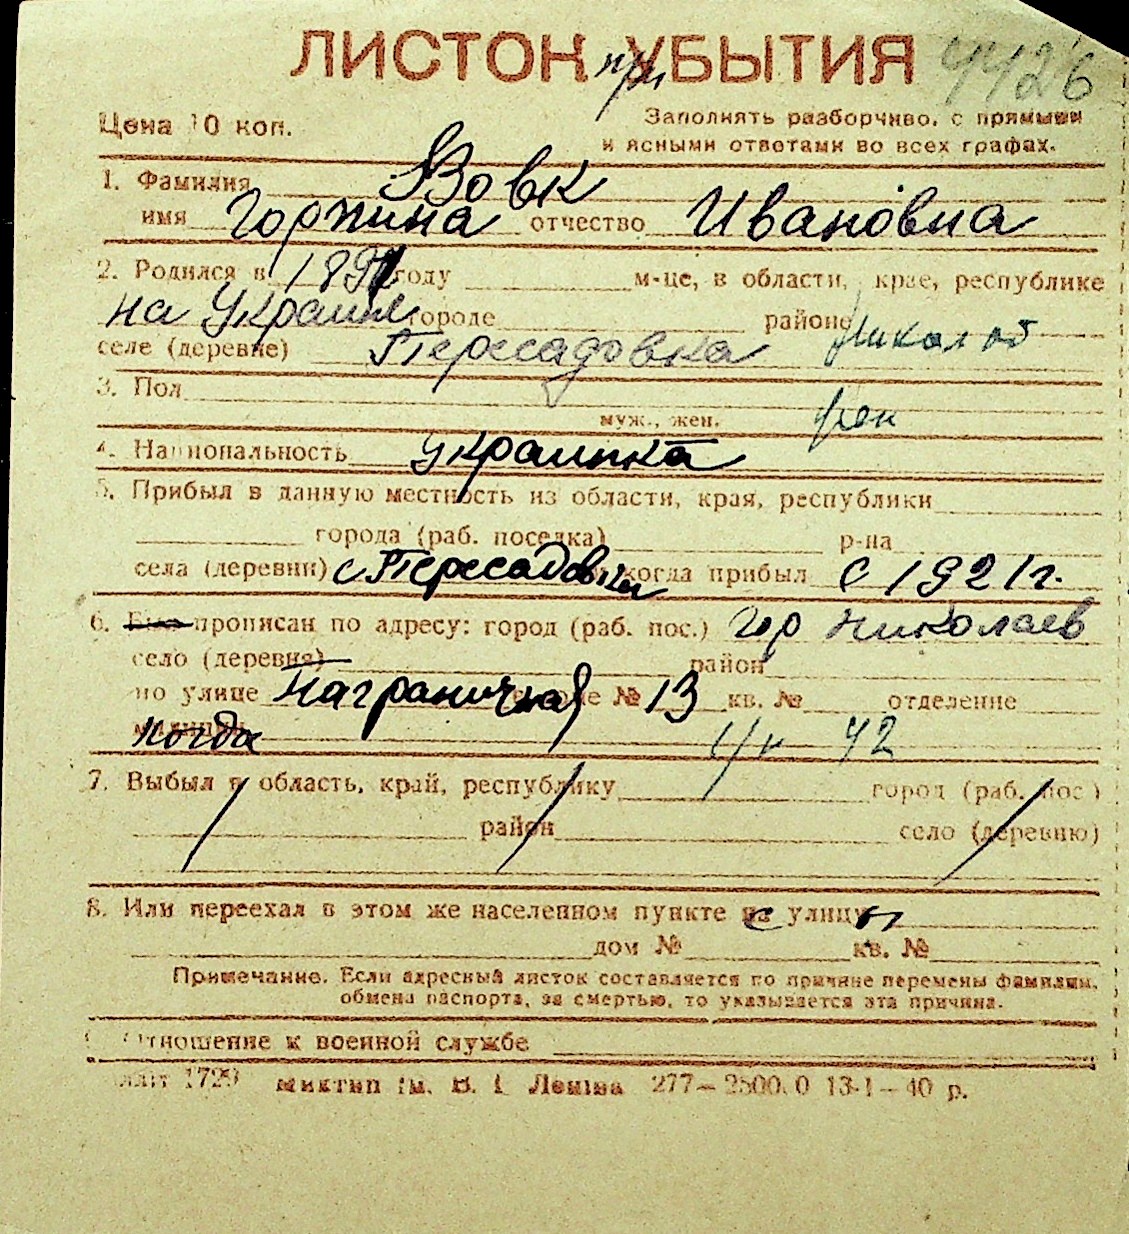 ЛИСТОК при УБЫТИЯ 4426
Цена 10 коп.
Заполнять разборчиво, с прямыми
и ясными ответами во всех графах.
1. Фамилия Вовк
имя Горпина отчество Ивановна
2. Родился в 1897 году м-це, в области, крае, республике
на Украине городе районе Николаев
селе (деревне) Пересадовка
3. Пол
муж., жен. жен
4. Национальность украинка
5. Прибыл в данную местность из области, края, республики
города (раб. поселка) р-на
села (деревни) с Пересадовки когда прибыл с 1921 г.
6. Был прописан по адресу: город (раб. пос.) гор Николаев
село (деревня) район
по улице Пограничная доме № 13 кв. № отделение
милиции когда 42
7. Выбыл в область, край, республику город (раб. пос.)
район село (деревню)
8. Или переехал в этом же населенном пункте на улицу
дом № кв. №
Примечание. Если адресный листок составляется по причине перемены фамилии,
обмена паспорта, за смертью, то указывается эта причина.
Отношение к военной службе
1729 им. В. И. Ленина 277—2500.0 13-1—40 р.